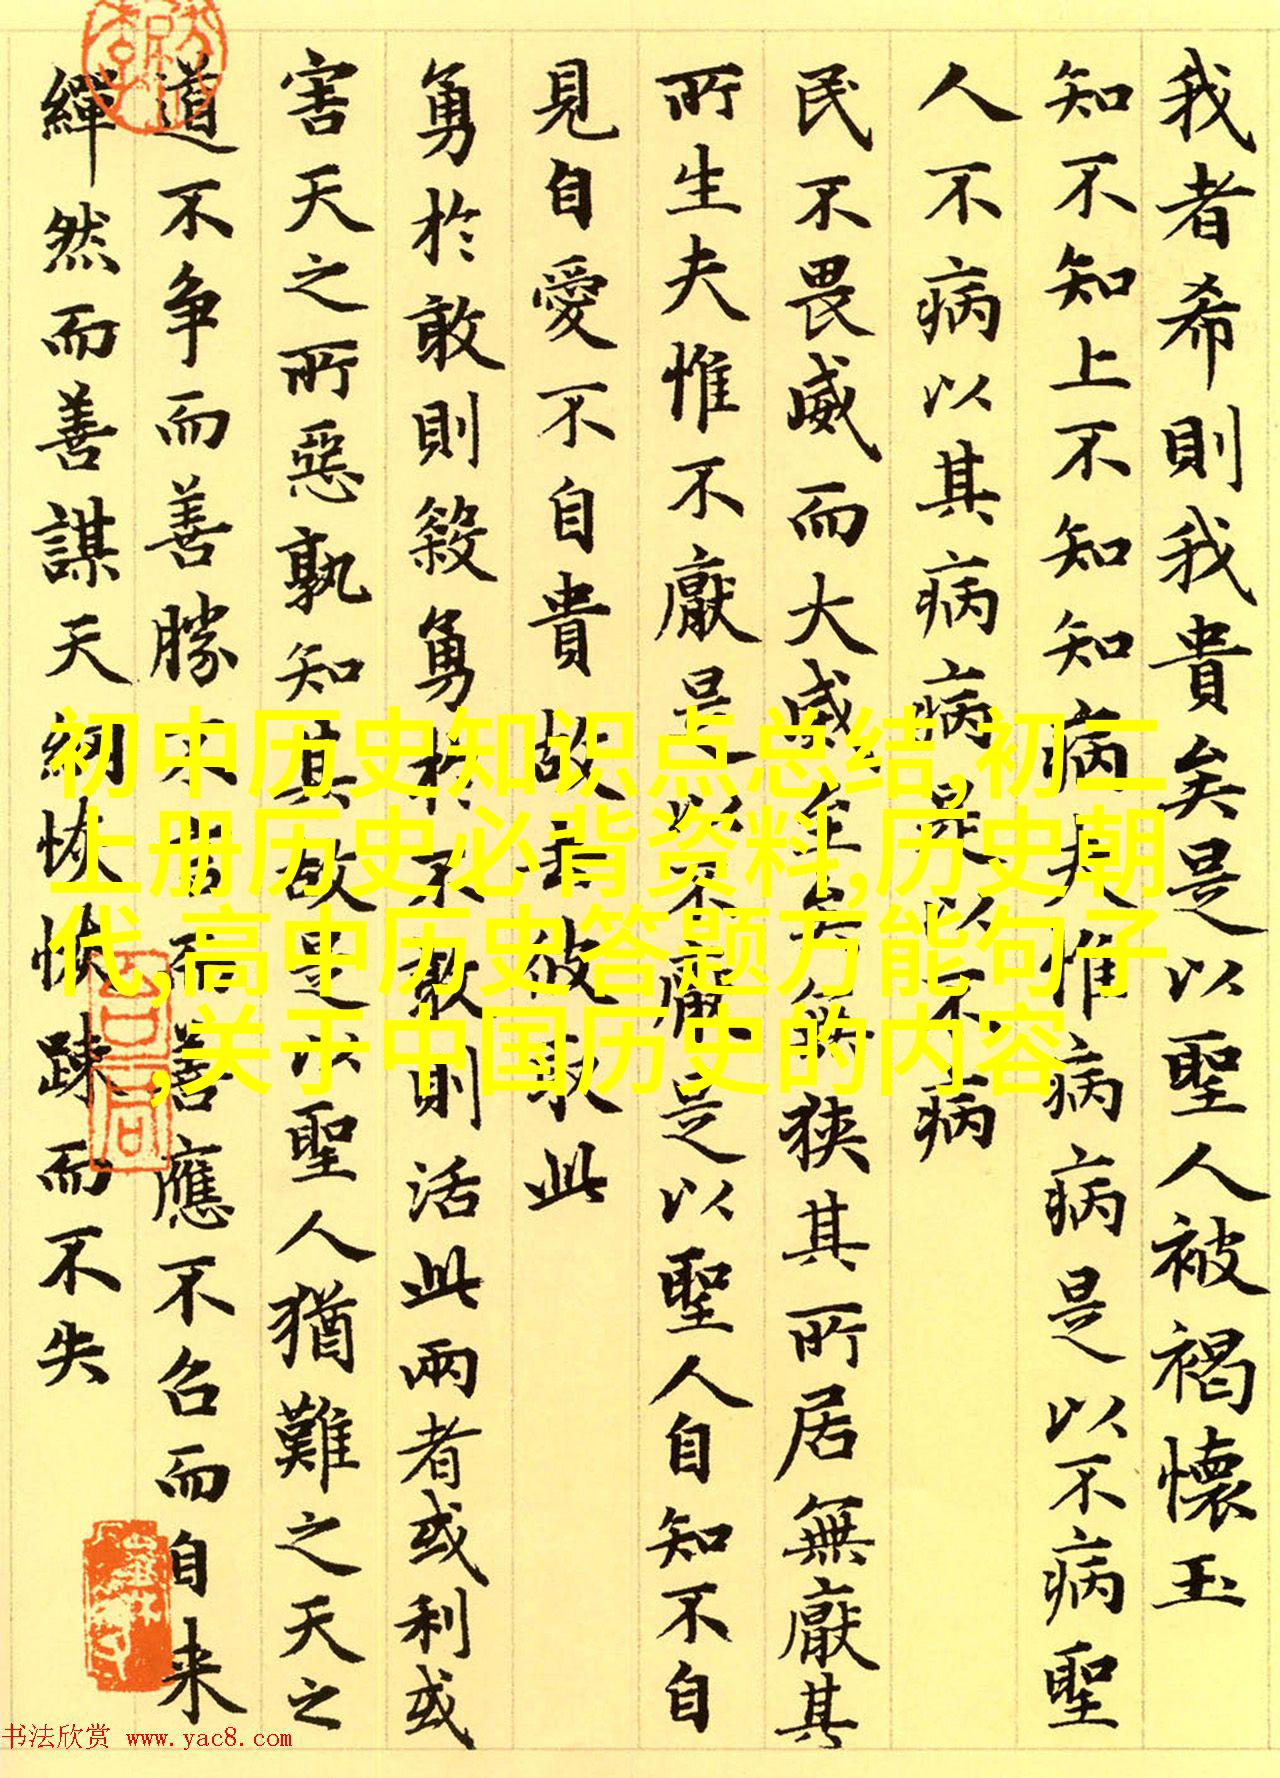 我者希則我貴矣是以聖人被褐懷玉
知不知上不知知病夫惟病病是以不病聖
人不病以其病病是以不病
民不畏威而大威至矣無狹其所居無厭其
所生夫惟不厭是以不厭是以聖人自知不自
見自愛不自貴故去彼取此
勇於敢則殺勇於不敢則活此兩者或利或
害天之所惡孰知其故是以聖人猶難之天之
道不争而善勝不言而善應不召而自来
繟然而善謀天網恢恢踈而不失
初中历史知识点总结,初二
上册历史必背资料,历史朝
代,高中历史答题万能句子
,关于中国历史的内容
书法欣赏 www.yac8.com